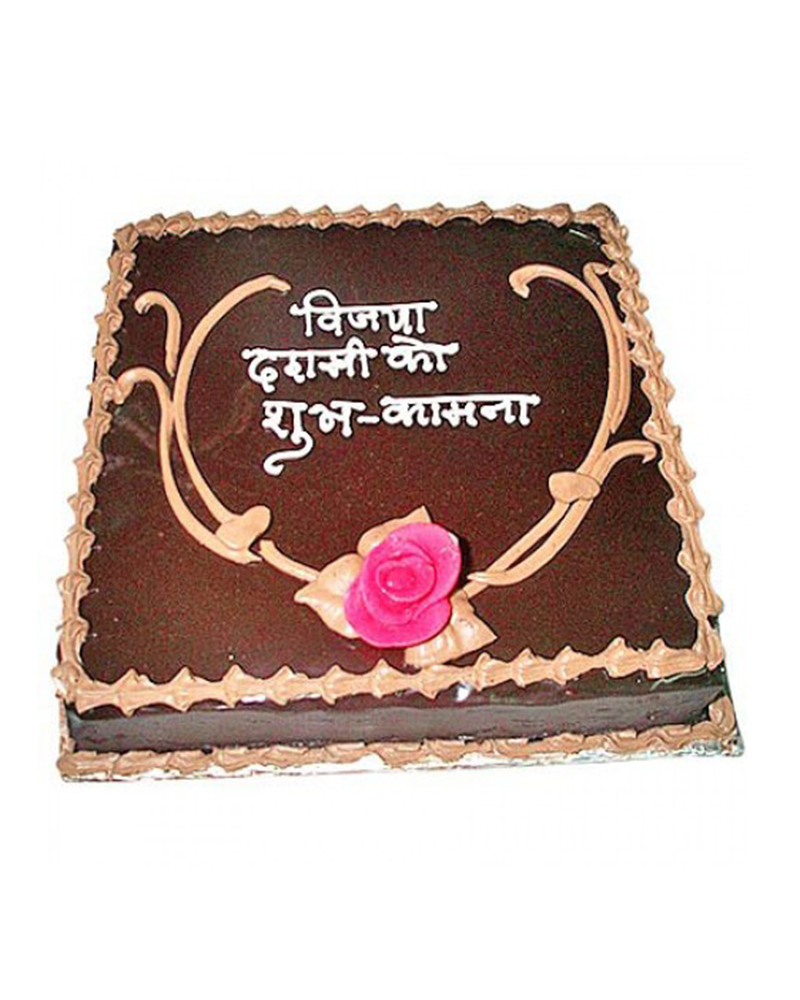 विजया
दशमी को
शुभ-कामना